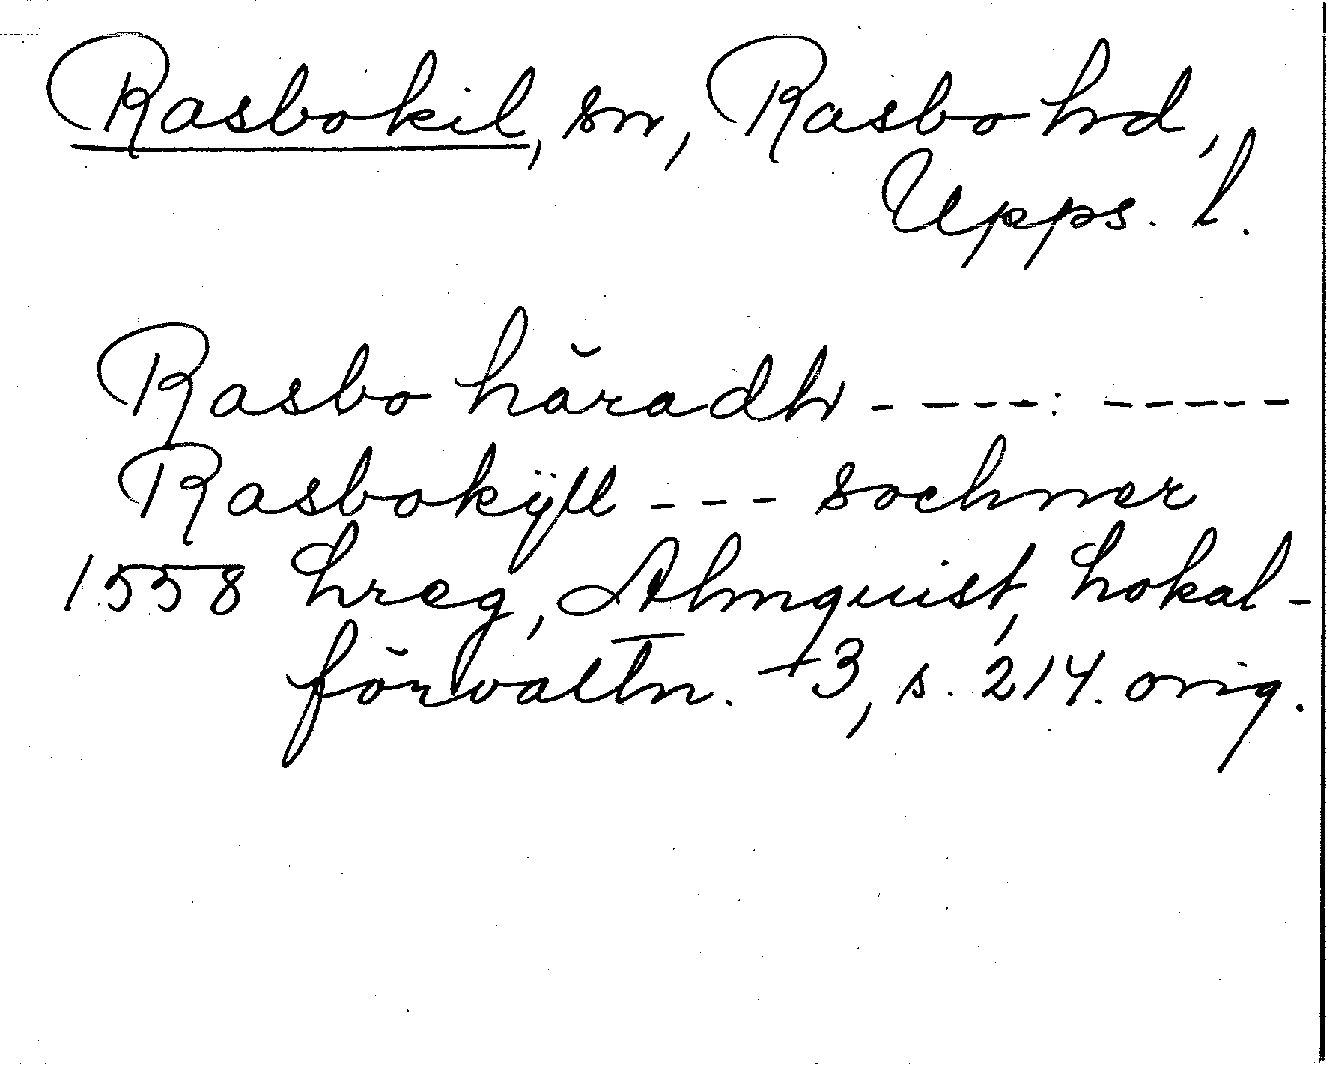 Rasbokil, sn, Rasbo hd,
Upps. l.
Rasbo häradh - - - - -: - - - - -
Rasbokÿll - - - sochner
1558 hreg, Almquist, Lokal-
förvaltn. +3, s. 214. orig.